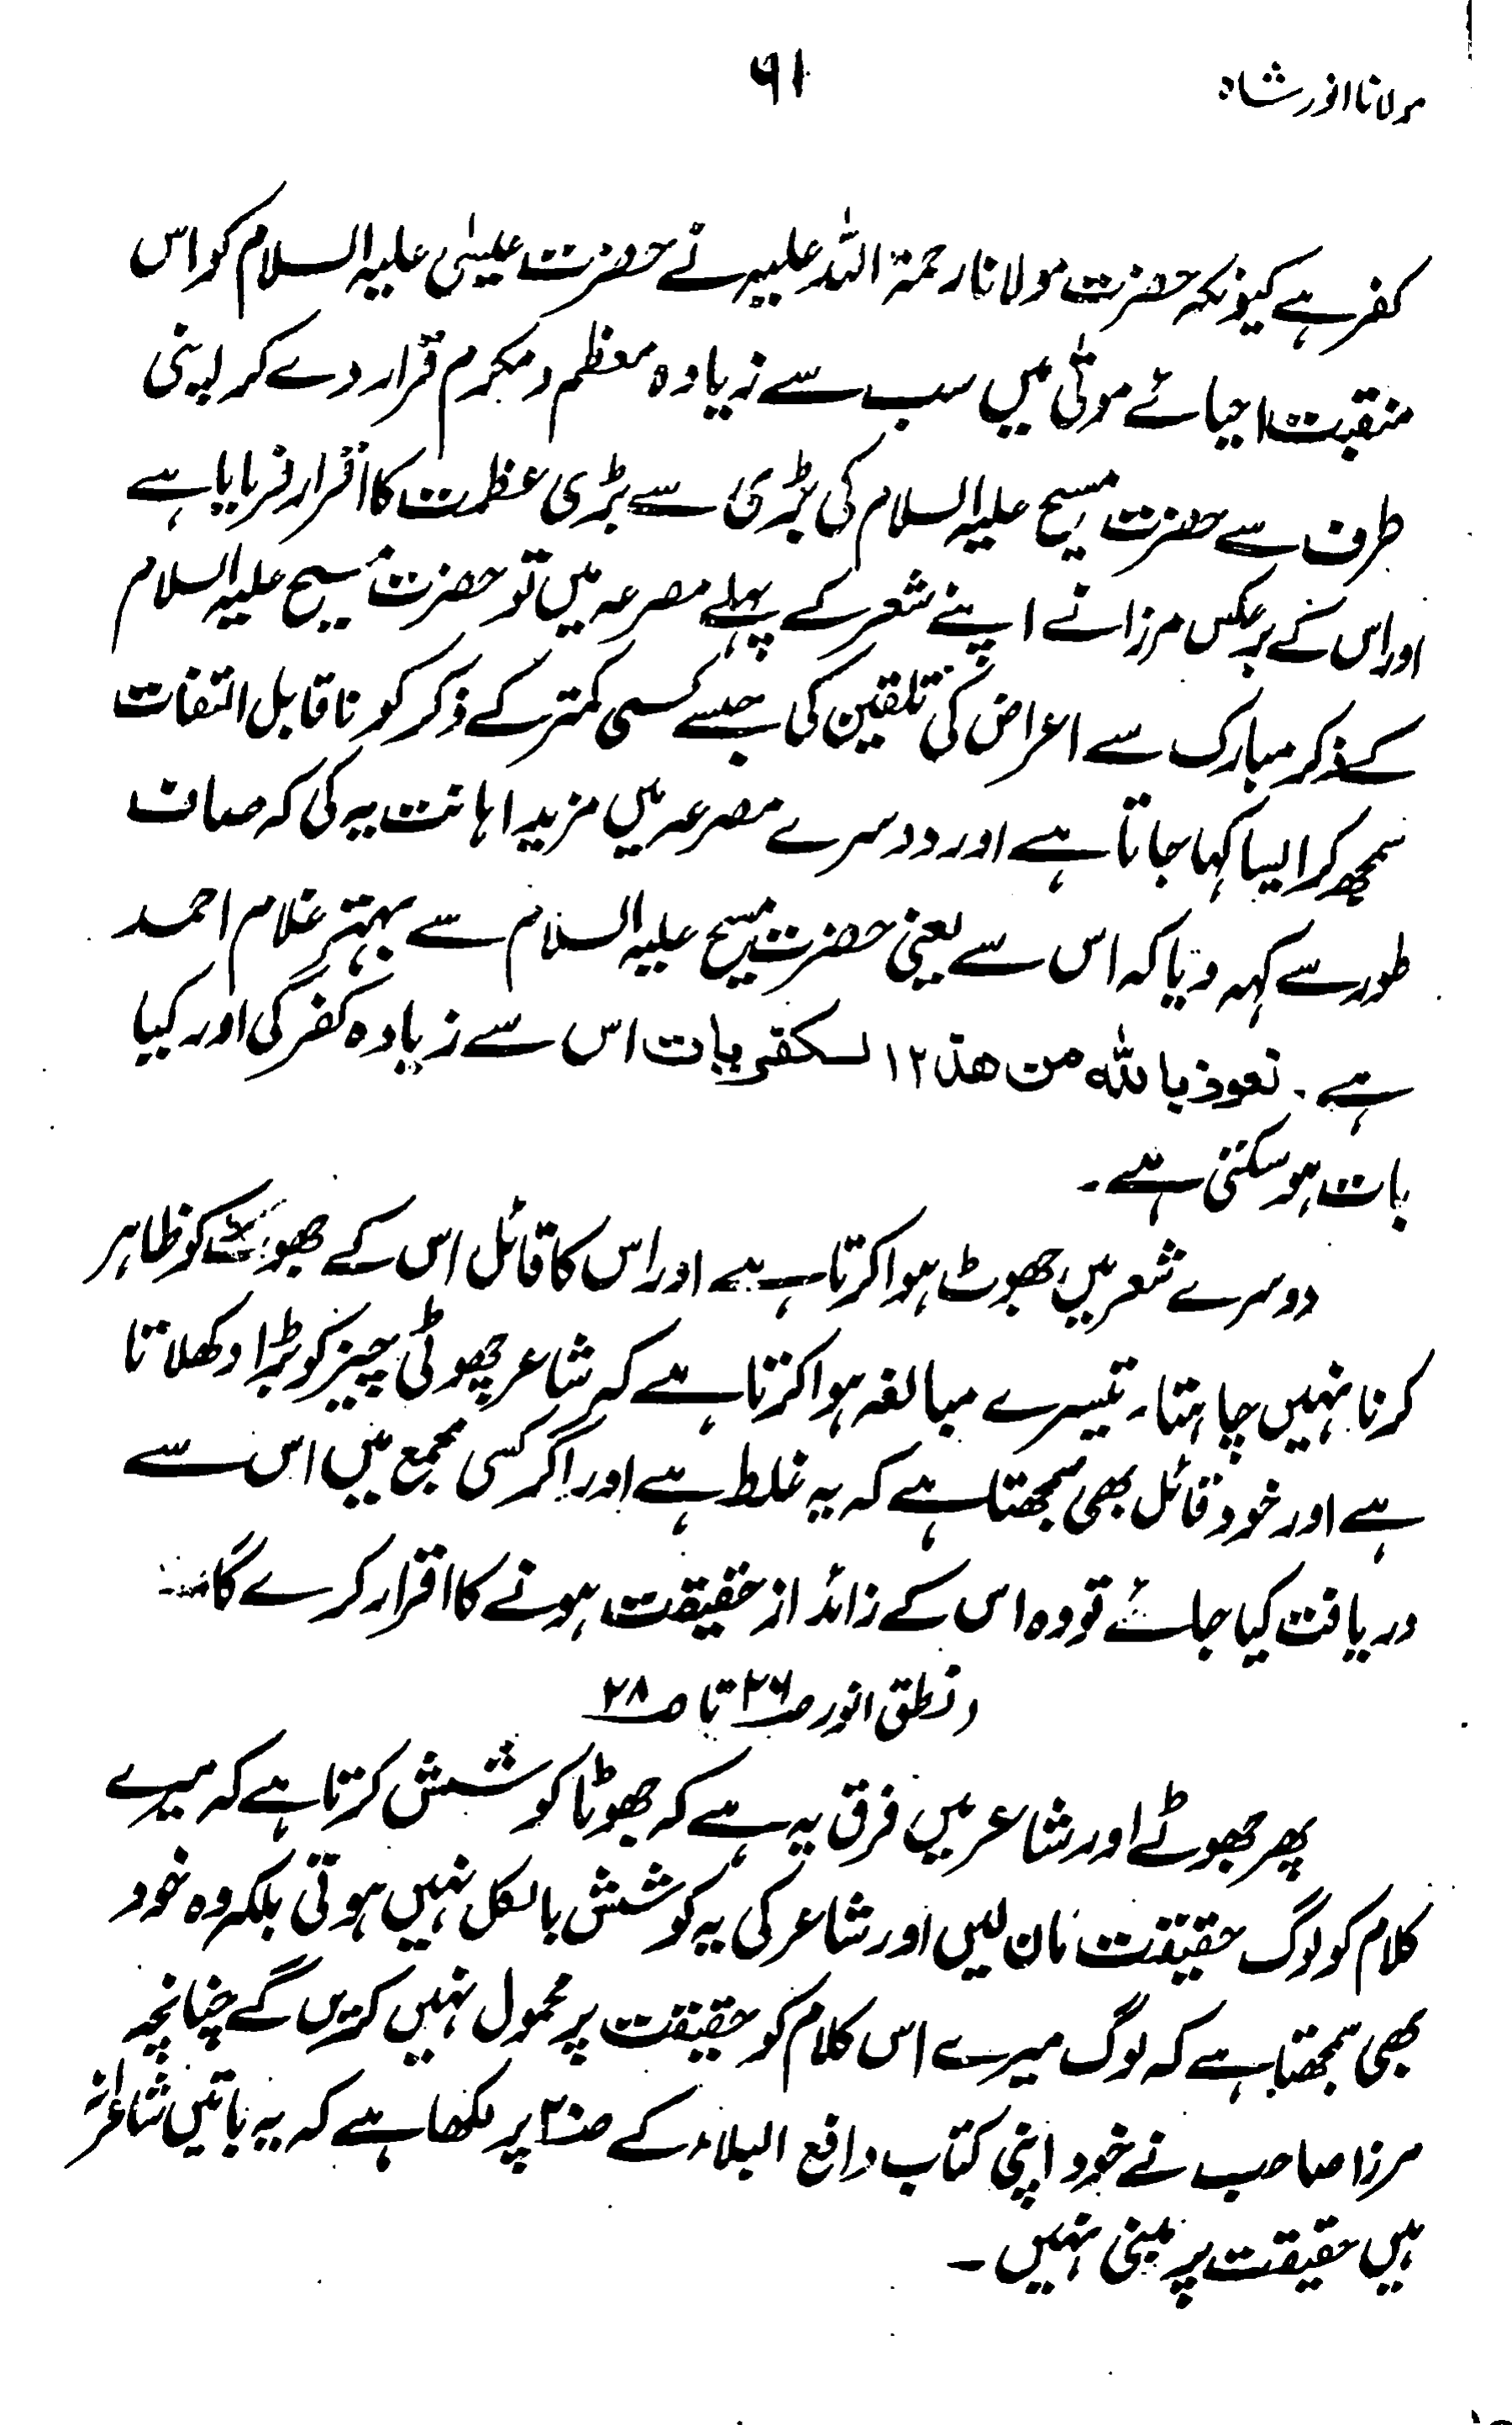 مولانا انور شاہ
۶۱
کفر ہے کیونکہ حضرت مولانا رحمۃ اللہ علیہ نے حضرت عیسٰی علیہ السلام کو اس
منقبت احیائے موتٰی میں سب سے زیادہ معظم و مکرم قرار دے کر اپنی
طرف سے حضرت مسیح علیہ السلام کی بڑی سے بڑی عظمت کا اقرار فرمایا ہے
اور اس کے برعکس مرزا نے اپنے شعر کے پہلے مصرعہ میں تو حضرت مسیح علیہ السلام
کے ذکر مبارک سے اعراض کی تلقین کی جیسے کسی کمتر کے ذکر کو ناقابل التفات
سمجھ کر ایسا کہا جاتا ہے اور دوسرے مصرعہ میں مزید اہانت یہ کی کہ صاف
طور سے کہہ دیا کہ اس سے یعنی حضرت مسیح علیہ السلام سے بہتر غلام احمد
ہے ۔ نعوذ باللہ من ھذا الکفریات اس سے زیادہ کفر کی اور کیا
بات ہو سکتی ہے ۔
دوسرے شعر میں جھوٹ ہوا کرتا ہے اور اس کا قائل اس کے جھوٹ کو ظاہر
کرنا نہیں چاہتا ۔ تیسرے مبالغہ ہوا کرتا ہے کہ شاعر چھوٹی چیز کو بڑا دکھلاتا
ہے اور خود قائل بھی سمجھتا ہے کہ یہ غلط ہے اور اگر کسی مجمع میں اس سے
دریافت کیا جائے تو وہ اس کے زائد از حقیقت ہونے کا اقرار کرے گا ۔
(نطق انور صـ ۲۶ تا صـ ۲۸
پھر جھوٹے اور شاعر میں فرق یہ ہے کہ جھوٹا کوشش کرتا ہے کہ میرے
کلام کو لوگ حقیقت مان لیں اور شاعر کی یہ کوشش بالکل نہیں ہوتی بلکہ وہ خود
بھی سمجھتا ہے کہ لوگ میرے اس کلام کو حقیقت پر محمول نہیں کریں گے چنانچہ
مرزا صاحب نے خود اپنی کتاب دافع البلاء کے صـ۲۰ پر لکھا ہے کہ یہ باتیں شاعرانہ
ہیں حقیقت پر مبنی نہیں ۔